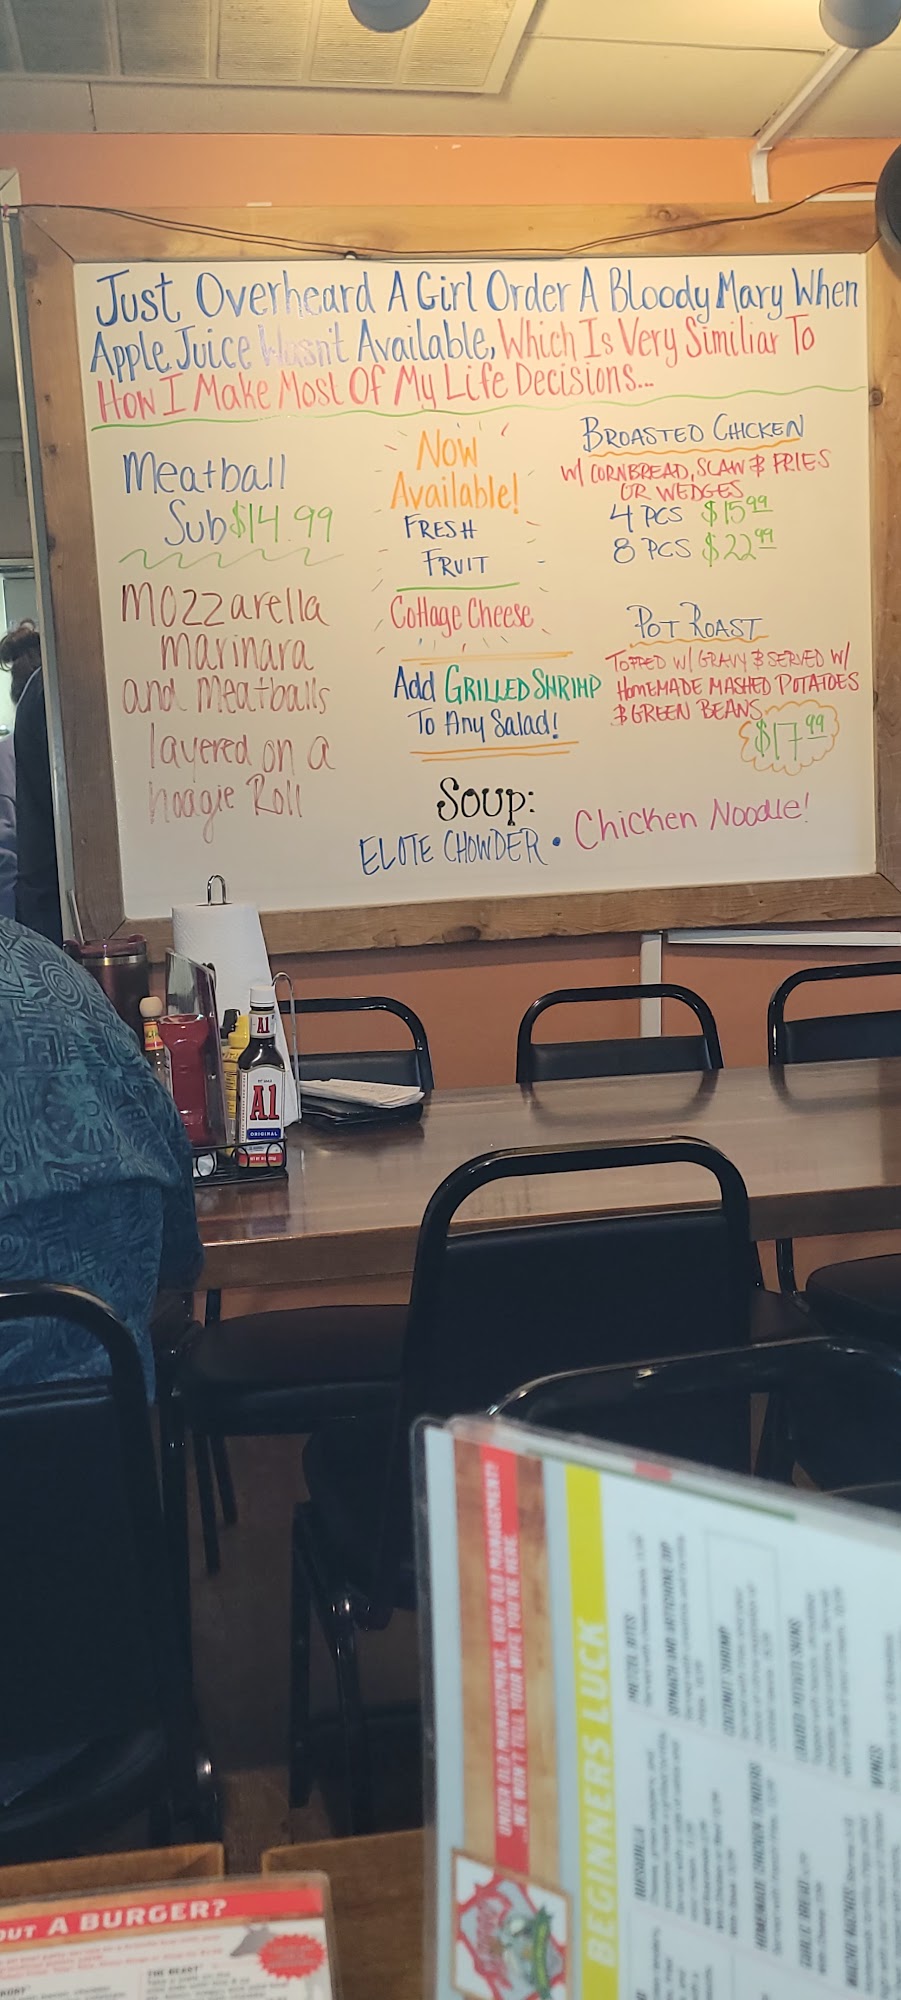 Just Overheard A Girl Order A Bloody Mary When
Apple Juice Wasn't Available, Which Is Very Similiar To
How I Make Most Of My Life Decisions...
Meatball
Sub $14.99
Mozzarella
marinara
and meatballs
layered on a
hoagie Roll
Now
Available!
FRESH
FRUIT
Cottage Cheese
Add GRILLED SHRIMP
To Any Salad!
BROASTED CHICKEN
W/ CORNBREAD, SLAW & FRIES
OR WEDGES
4 PCS $15.99
8 PCS $22.99
POT ROAST
TOPPED W/ GRAVY & SERVED W/
HOMEMADE MASHED POTATOES
& GREEN BEANS
$17.99
Soup:
ELOTE CHOWDER • Chicken Noodle!
A1
A1
ORIGINAL
UNDER OLD MANAGEMENT, VERY OLD MANAGEMENT!
...WE WON'T TELL YOUR WIFE YOU'RE HERE.
BEGINNERS LUCK
PRETZEL BITES
SPINACH AND ARTICHOKE DIP
COCONUT SHRIMP
LOADED POTATO SKINS
WINGS
QUESADILLA
HOMEMADE CHICKEN TENDERS
GARLIC BREAD
OUT A BURGER?
THE BEAST